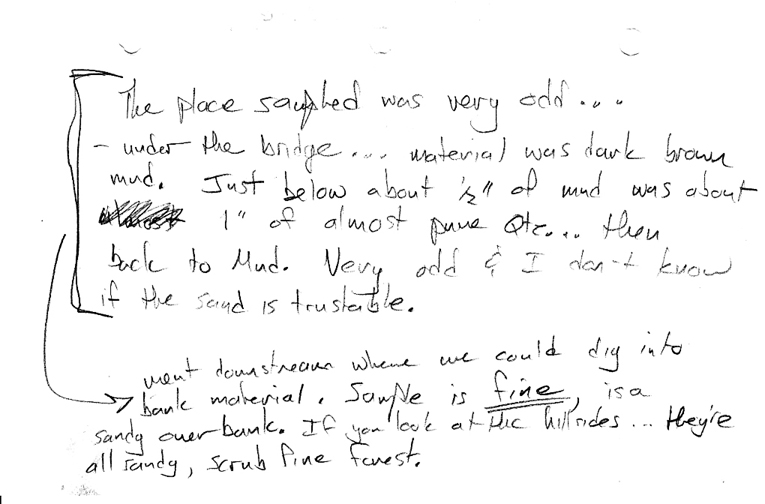 The place sampled was very odd....
- under the bridge.... material was dark brown
mud. Just below about 1/2" of mud was about
1" of almost pure Qtz.... then
back to Mud. Very odd & I don't know
if the sand is trustable.
went downstream where we could dig into
bank material. Sample is fine, is a
sandy overbank. If you look at the hillsides... they're
all sandy, scrub Pine forest.